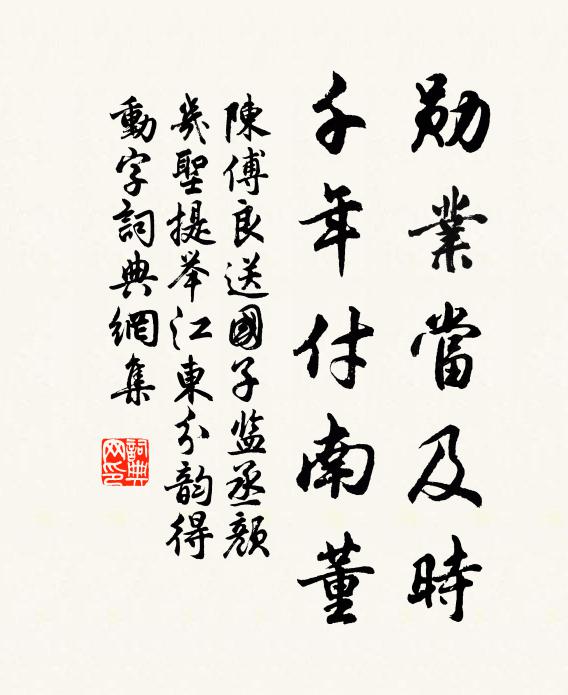 勛業當及時
千年付南董
陳傅良送國子監丞顏
幾聖提举江東分韵得
動字詞典網集
詞典
网印